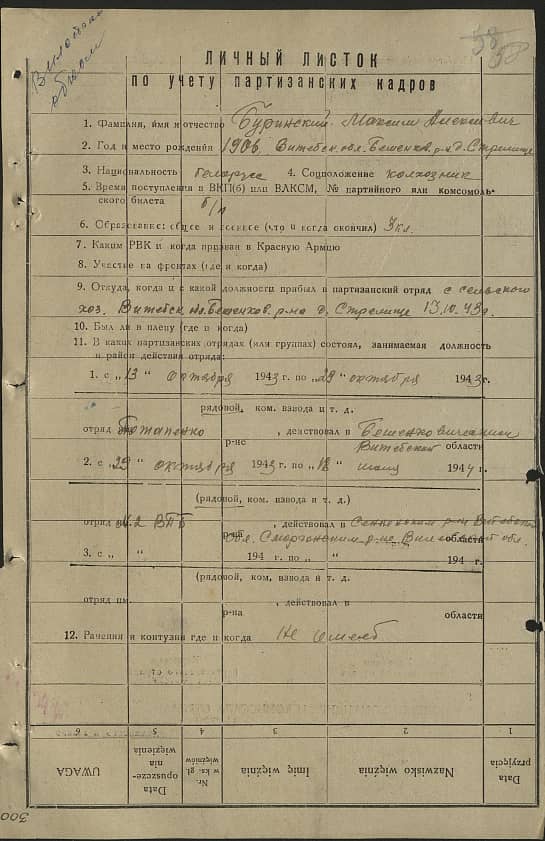 58
Вилейский
обком
ЛИЧНЫЙ ЛИСТОК
по учету партизанских кадров
1. Фамилия, имя и отчество Буринский Максим Алексеевич
2. Год и место рождения 1906. Витебск. обл. Бешенков. р-н д. Стрелище
3. Национальность белорус 4. Соцположение колхозник
5. Время поступления в ВКП(б) или ВЛКСМ, № партийного или комсомоль-
ского билета б/п
6. Образование: общее и военное (что и когда окончил) 3 кл.
7. Каким РВК и когда призван в Красную Армию
8. Участие на фронтах (где и когда)
9. Откуда, когда и с какой должности прибыл в партизанский отряд с сельского
хоз. Витебск. Бешенков. р-на д. Стрелище 13.10.43 г.
10. Был ли в плену (где и когда)
11. В каких партизанских отрядах (или группах) состоял, занимаемая должность
и район действия отряда:
1. с „13 “ октября 1943 г. по „29 “ октября 1943 г.
рядовой, ком. взвода и т. д.
отряд Потапенко , действовал в Бешенковичском
р-не Витебской области
2. с „29 “ октября 1943 г. по „18 “ 1944 г.
(рядовой, ком. взвода и т. д.)
отряд №2 ВПБ , действовал в Сенненском р-не Витебской
р-на обл. Сморгонским р-не Вилейской обл. области
3. с „ “ 194 г. по „ “ 194 г.
(рядовой, ком. взвода и т. д.
отряд им. , действовал в
р-на области
12. Ранения и контузия где и когда Не имеет
1 2 3 4 5 6
Data przyjęcia
Nazwisko więźnia
Imię więźnia
Nr. w ks. gł. więźniów
Data opuszcze-
nia więzienia
UWAGA
300